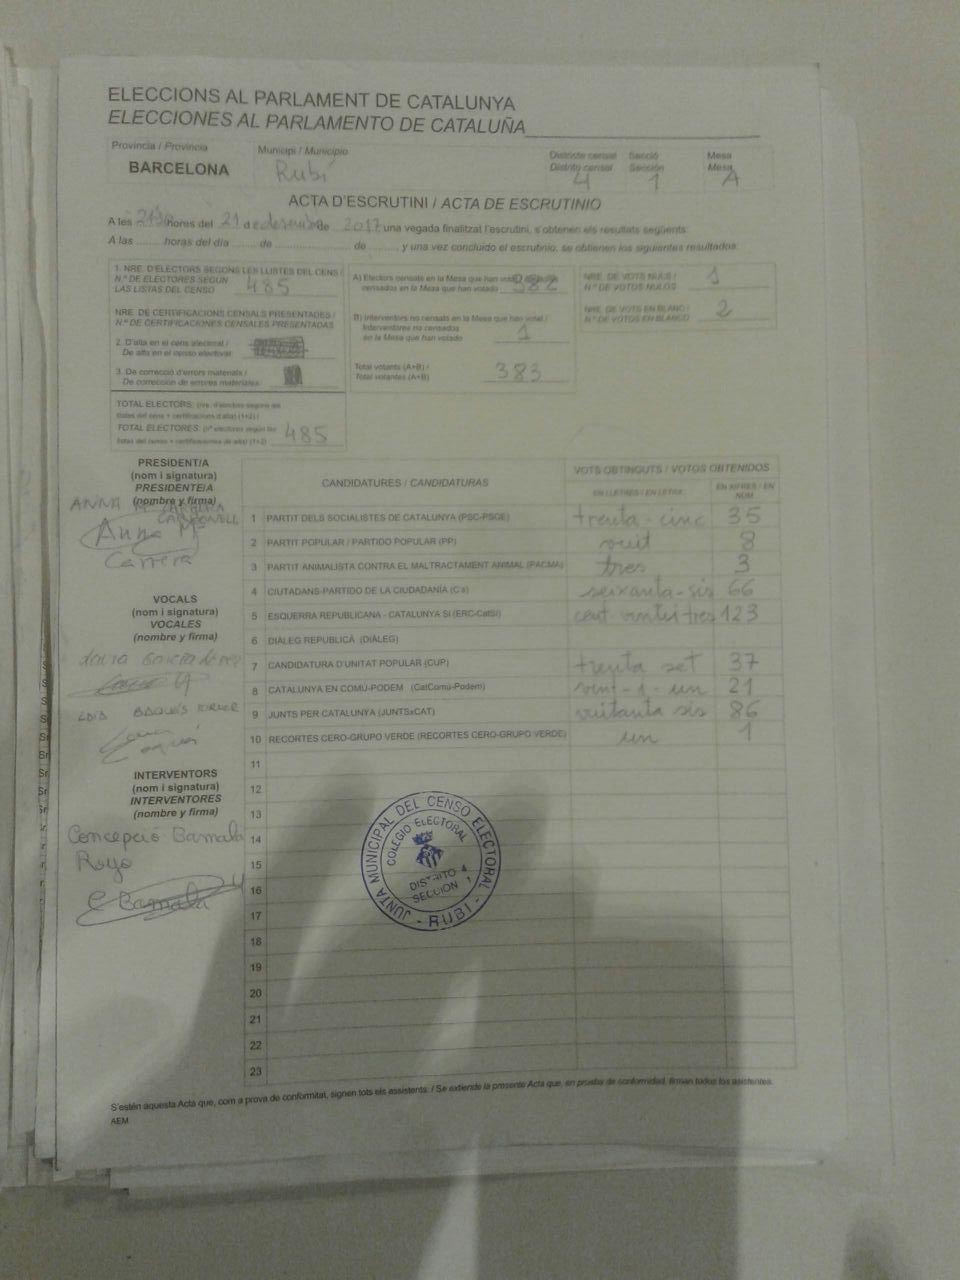 ELECCIONS AL PARLAMENT DE CATALUNYA
ELECCIONES AL PARLAMENTO DE CATALUÑA
Provincia / Provincia
BARCELONA
Municipi / Municipio
Rubí
Districte censal
Distrito censal
4
Secció
Sección
1
Mesa
Mesa
A
ACTA D'ESCRUTINI / ACTA DE ESCRUTINIO
A les hores del 21 de desembre de 2017 una vegada finalitzat l'escrutini, s'obtenen els resultats següents:
A las ........ horas del día ........ de ................ de ........, y una vez concluido el escrutinio, se obtienen los siguientes resultados:
1. NRE. D'ELECTORS SEGONS LES LLISTES DEL CENS /
N.º DE ELECTORES SEGÚN
LAS LISTAS DEL CENSO 485
NRE. DE CERTIFICACIONS CENSALS PRESENTADES /
N.º DE CERTIFICACIONES CENSALES PRESENTADAS
2. D'alta en el cens electoral /
De alta en el censo electoral:
3. De correcció d'errors materials /
De corrección de errores materiales:
TOTAL ELECTORS: (nre. d'electors segons les
llistes del cens + certificacions d'alta) (1+2) /
TOTAL ELECTORES: (nº electores según las
listas del censo + certificaciones de alta) (1+2) 485
A) Electors censats en la Mesa que han votat /
censados en la Mesa que han votado 382
B) Interventors no censats en la Mesa que han votat /
Interventores no censados
en la Mesa que han votado 1
Total votants (A+B) /
Total votantes (A+B) 383
NRE. DE VOTS NULS /
N.º DE VOTOS NULOS 1
NRE. DE VOTS EN BLANC /
N.º DE VOTOS EN BLANCO 2
PRESIDENT/A
(nom i signatura)
PRESIDENTE/A
(nombre y firma)
ANNA M. CARRERA
CARBONELL
Anna Mª
Carrera
VOCALS
(nom i signatura)
VOCALES
(nombre y firma)
INTERVENTORS
(nom i signatura)
INTERVENTORES
(nombre y firma)
Concepció Bamala
Royo
C Bamala
CANDIDATURES / CANDIDATURAS
VOTS OBTINGUTS / VOTOS OBTENIDOS
EN LLETRES / EN LETRA
EN XIFRES / EN NÚM
1 PARTIT DELS SOCIALISTES DE CATALUNYA (PSC-PSOE) trenta-cinc 35
2 PARTIT POPULAR / PARTIDO POPULAR (PP) vuit 8
3 PARTIT ANIMALISTA CONTRA EL MALTRACTAMENT ANIMAL (PACMA) tres 3
4 CIUTADANS-PARTIDO DE LA CIUDADANÍA (C's) seixanta-sis 66
5 ESQUERRA REPUBLICANA - CATALUNYA SÍ (ERC-CatSí) cent-vintitres 123
6 DIÀLEG REPUBLICÀ (DIÀLEG)
7 CANDIDATURA D'UNITAT POPULAR (CUP) trenta set 37
8 CATALUNYA EN COMÚ-PODEM (CatComú-Podem) vint-i-un 21
9 JUNTS PER CATALUNYA (JUNTSxCAT) vuitanta sis 86
10 RECORTES CERO-GRUPO VERDE (RECORTES CERO-GRUPO VERDE) un 1
11
12
13
14
15
16
17
18
19
20
21
22
23
JUNTA MUNICIPAL DEL CENSO ELECTORAL - RUBI -
COLEGIO ELECTORAL
DISTRITO 4
SECCION 1
S'estén aquesta Acta que, com a prova de conformitat, signen tots els assistents. / Se extiende la presente Acta que, en prueba de conformidad, firman todos los asistentes.
AEM